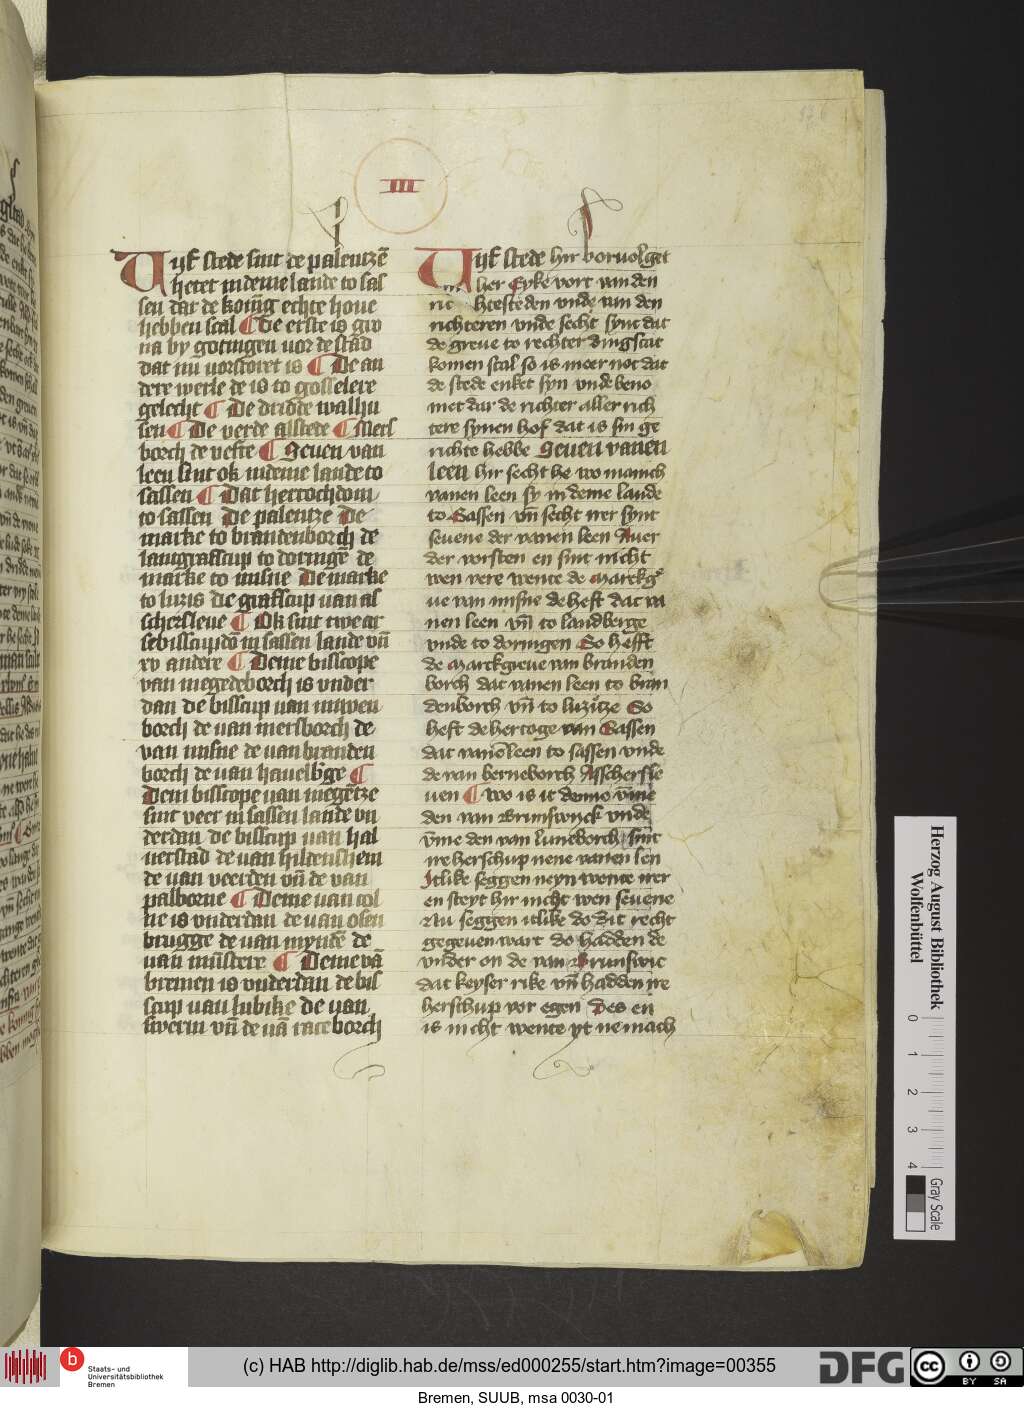 III
Uyf stede sint de palentzē
hetet in deme lande to sas
sen dar de konīg echte houe
hebben scal ¶ De erste is gro
na by gotingen vor de stad
dat nu vorstoret is ¶ De an
dere werle de is to gosselere
gelecht ¶ De dridde walhu
sen ¶ De verde alstede ¶ Mers
borch de vefte ¶ Seuen van
leen sint ok in deme lande to
sassen ¶ Dat hertochdom
to sassen De palentze De
marke to brandenborch de
lantgrafscup to doringē de
marke to misne De marke
to lusis die grafscup van as
schersleue ¶ Ok sint twe er
sebisscupdō in sassen lande vn̄
xv andere ¶ Deme bisscope
van megedeborch is vnder
dan de bisscup van nuwen
borch de van mersborch de
van misne de van branden
borch de van hauelb'ge ¶
Dem bisscope van megētze
sint veer in sassen lande vn
derdan de bisscup van hal
uerstad de van hildenshem
de van veerden vn̄ de van
palborne ¶ Deme van col
ne is vnderdan de van osen
brugge de van myndē de
van mūstere ¶ Deme vā
bremen is vnderdan de bis
scup van lubike de van
swerin vn̄ de vā raceborch
Uyf stede hir voruolget
her Eyke vort van den
htesteden vnde van den
richteren vnde secht synt dat
de greue to rechter dingstat
komen scal so is meer not dat
de stede enket syn vnde beno
met dar de richter aller rich
tere synen hof dat is sin ge
richte hebbe Seuen vanen
leen hir secht he wo manich
vanen leen sy in deme lande
to Sassen vn̄ secht irer synt
seuene der vanen leen Auer
der vorsten en sint nicht
wen vere wente de marckg'
ue van misne de heft dat va
nen leen vn̄ to landberge
vnde to doringen So hefft
de Marckgreue van branden
borch dat vanen leen to bran
denborch vn̄ to luzitze So
heft de hertoge van Sassen
dat vanēleen to sassen vnde
de van berneborch Asschersle
uen ¶ Wo is it denno vm̄e
den van Brunswyck vnde
vm̄e den van luneborch sint
ire herschup nene vanen len
Itlike seggen neyn wente irer
en steyt hir nicht wen seuene
Nu seggen itlike do dit recht
gegeuen wart do hadden de
vnder on de van Brunswic
dat keyser rike vn̄ hadden ire
herschup vor egen Des en
is nicht wente yt ne mach
Herzog August Bibliothek
Wolfenbüttel
0 1 2 3 4
Gray Scale
b
Staats- und
Universitätsbibliothek
Bremen
(c) HAB http://diglib.hab.de/mss/ed000255/start.htm?image=00355
DFG
cc BY SA
Bremen, SUUB, msa 0030-01